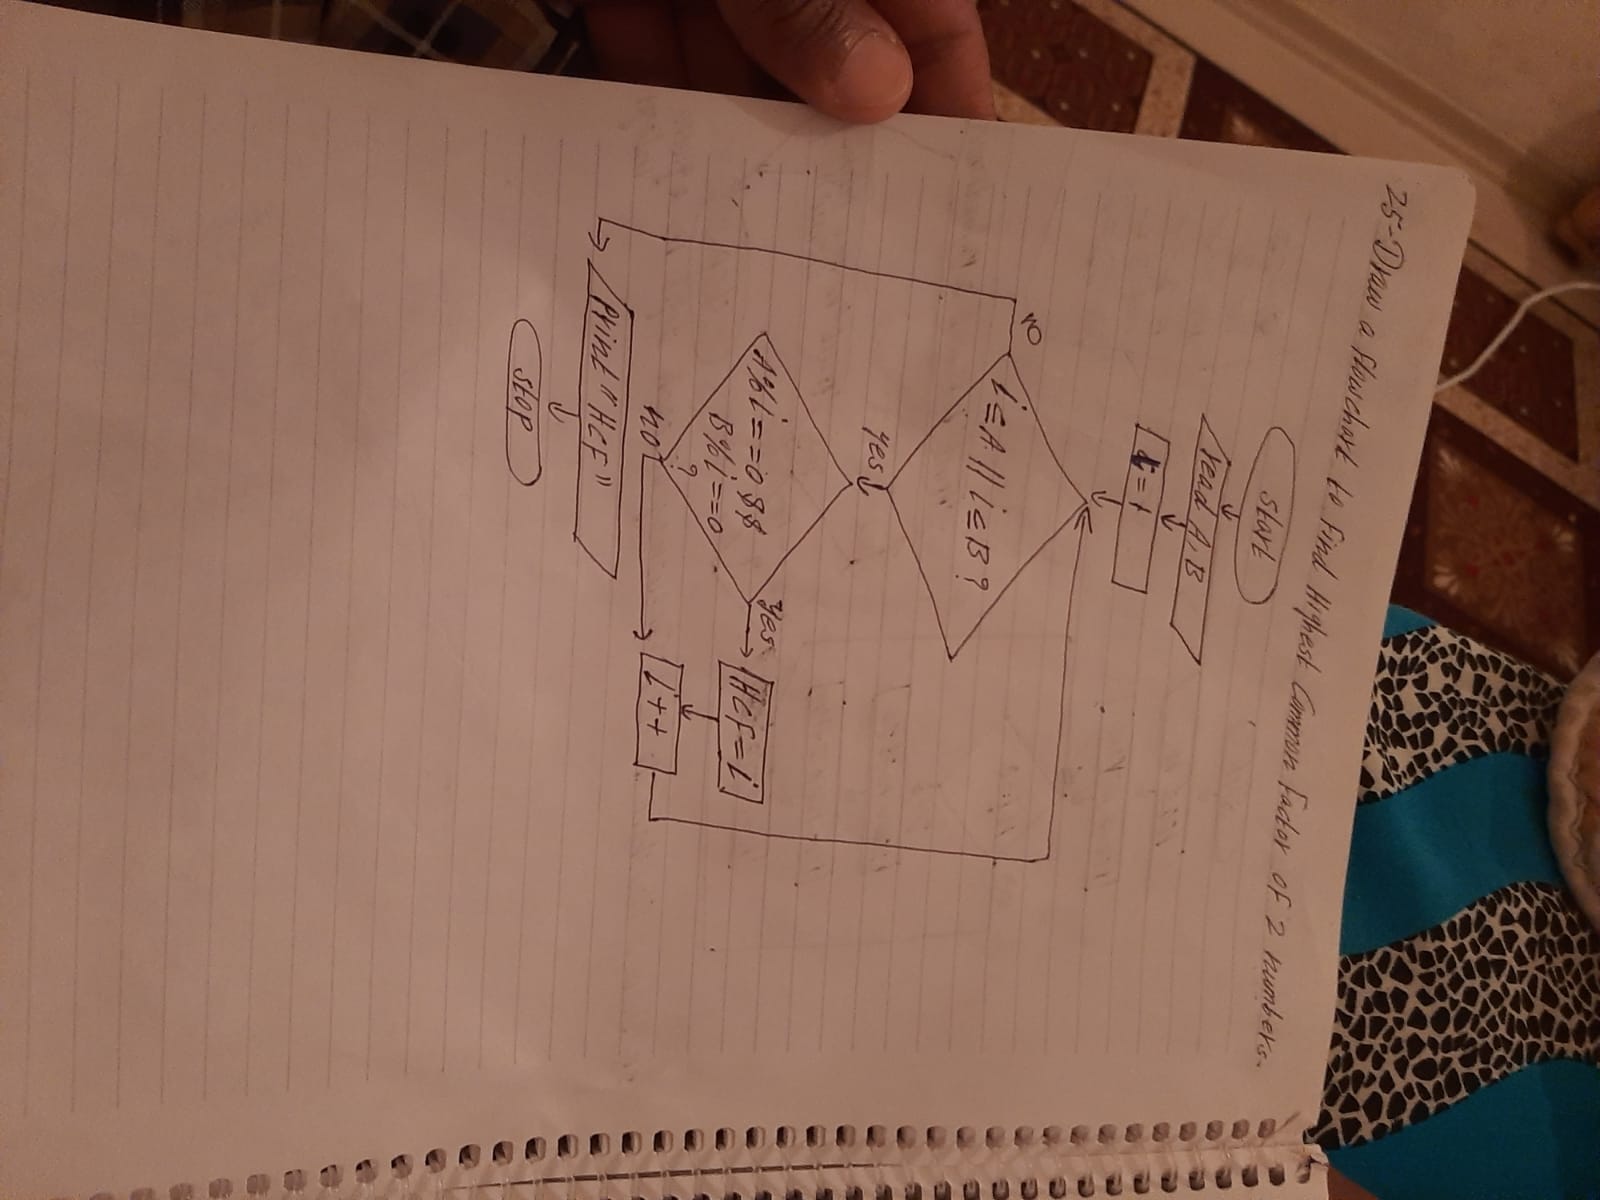 25-Draw a flowchart to find Highest Common Factor of 2 numbers.
start
read A,B
i = 1
i ≤ A || i ≤ B ?
no
yes
A%i==0 &&
B%i==0
?
yes
HCF = i
no
i++
print "HCF"
stop